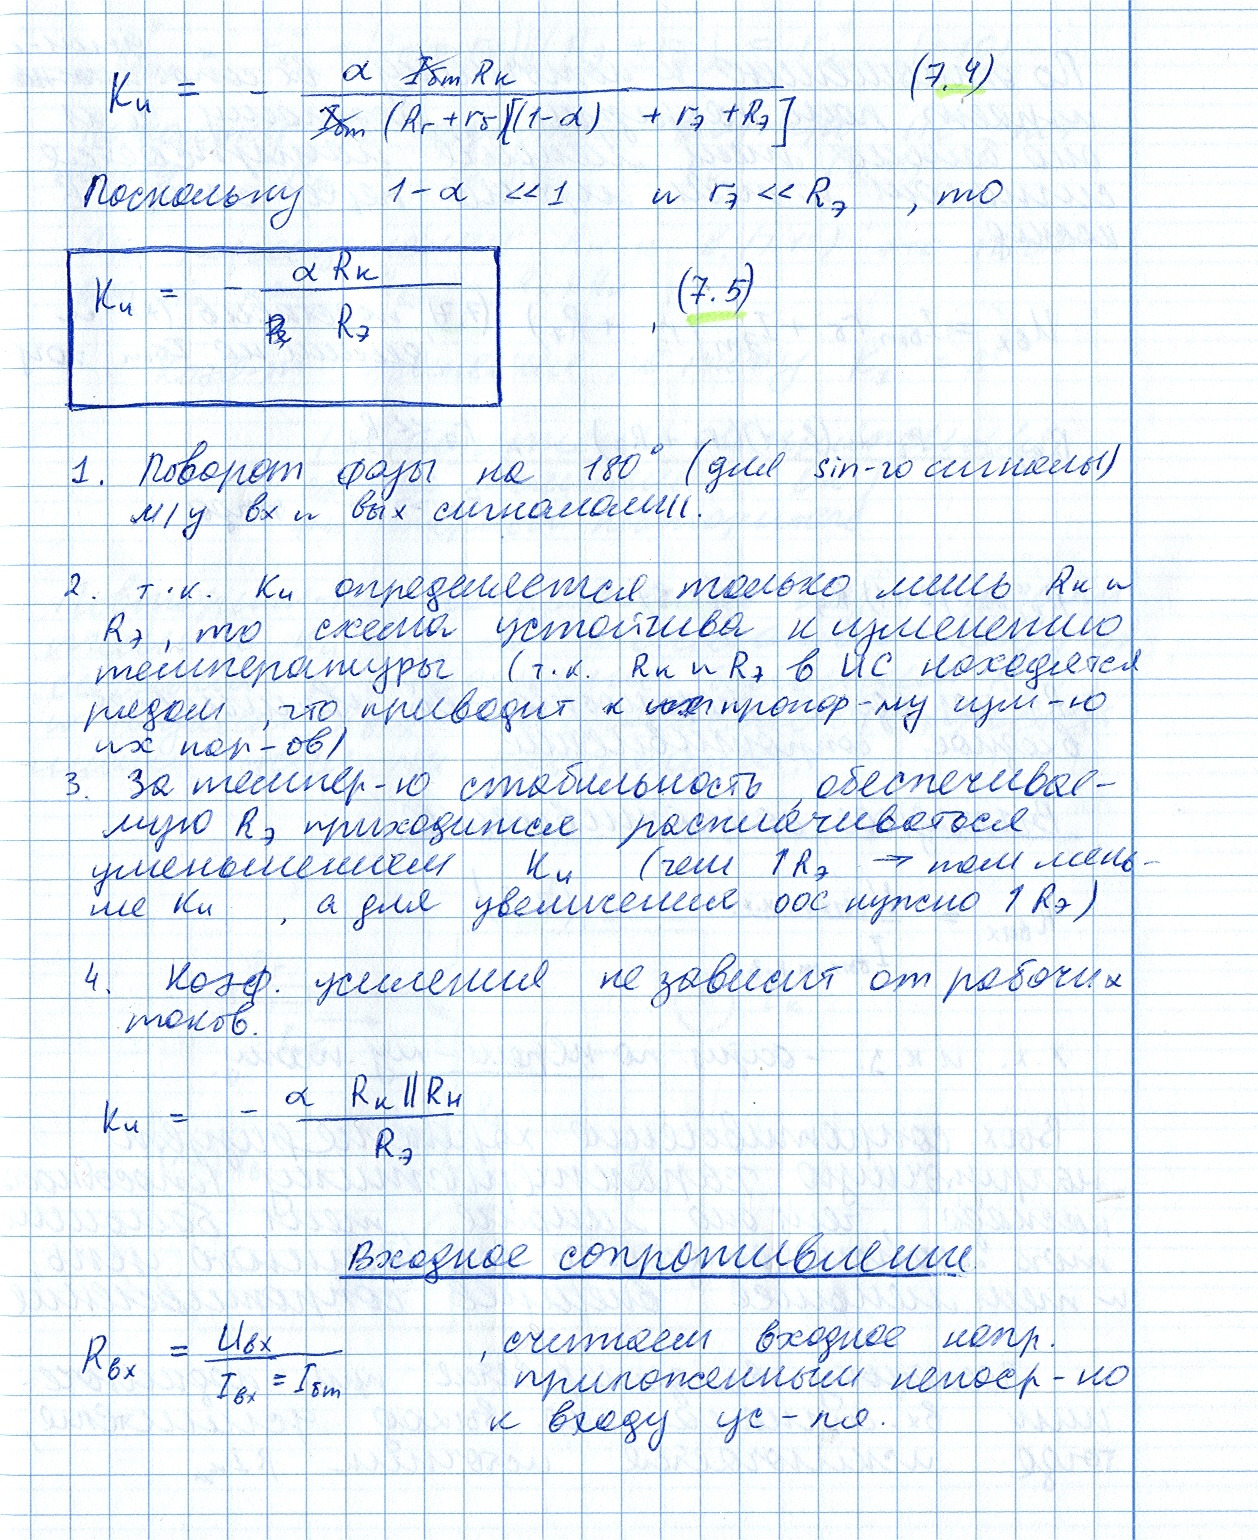 Kи = - α I̶б̶m̶ Rк / I̶б̶m̶ (Rг + rб)[(1-α) + rэ + Rэ] (7.4)
Поскольку 1-α << 1 и rэ << Rэ , то
Kи = - α Rк / Rэ , (7.5)
1. Поворот фазы на 180° (для sin-го сигналы)
м/у вх и вых сигналами.
2. т.к. Kи определяется только лишь Rк и
Rэ, то схема устойчива к изменению
температуры (т.к. Rк и Rэ в ИС находятся
рядом, что приводит к пропор-му изм-ю
их пар-ов)
3. За темпер-ю стабильность, обеспечивае-
мую Rэ приходится расплачиваться
уменьшением Kи (чем ↑Rэ → тем мень-
ше Kи , а для увеличения оос нужно ↑Rэ)
4. Коэф. усиления не зависит от рабочих
токов.
Kи = - α Rк || Rн / Rэ
Входное сопротивление
Rвх = Uвх / Iвх = Iбm , считаем входное напр.
приложенным непоср-но
к входу ус-ля.